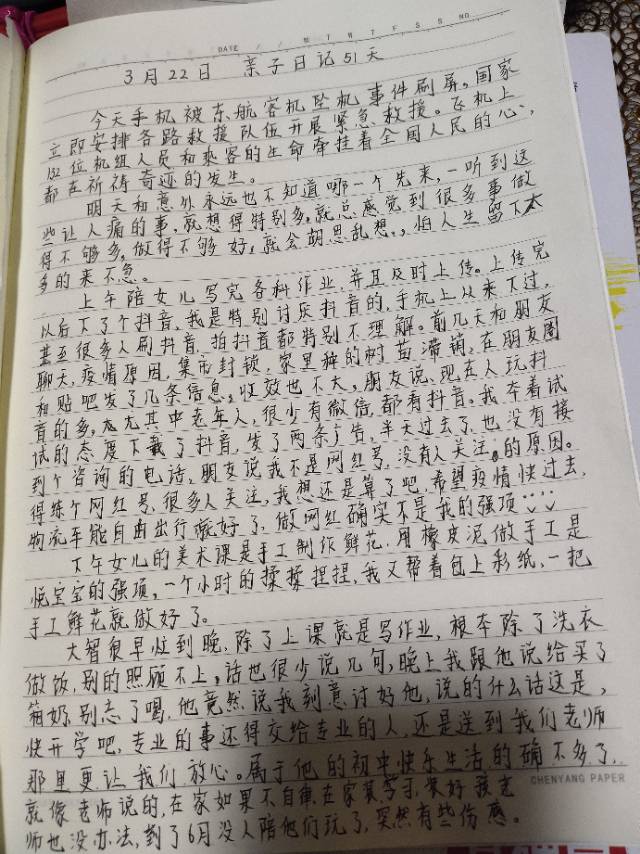 DATE
NO.
3月22日 亲子日记51天
今天手机被东航客机坠机事件刷屏。国家
立即安排各路救援队伍开展紧急救援。飞机上
132位机组人员和乘客的生命牵挂着全国人民的心,
都在祈祷奇迹的发生。
明天和意外永远也不知道哪一个先来,一听到这
些让人痛的事,就想得特别多,就总感觉到很多事做
得不够多,做得不够好,就会胡思乱想,,怕人生留下太
多的来不急。
上午陪女儿写完各科作业,并且及时上传。上传完
以后下了个抖音,我是特别讨厌抖音的,手机上从来下过,
甚至很多人刷抖音,拍抖音都特别不理解。前几天和朋友
聊天,疫情原因,集市封锁,家里种的树苗滞销,在朋友圈
和贴吧发了几条信息,收效也不大。朋友说、现在人玩抖
音的多,尤其中老年人,很少有微信,都看抖音。我本着试
试的态度下载了抖音,发了两条广告,半天过去了也没有接
到个咨询的电话,朋友说我不是网红号,没有人关注的原因。
得练个网红号,很多人关注,我想还是算了吧,希望疫情快过去,
物流车能自由出行就好了,做网红确实不是我的强项
下午女儿的美术课是手工制作鲜花,用橡皮泥做手工是
悦宝宝的强项,一个小时的揉揉捏捏,我又帮着包上彩纸、一把
手工鲜花就做好了。
大智很早忙到晚,除了上课就是写作业,根本除了洗衣
做饭,别的照顾不上,话也很少说几句,晚上我跟他说给买了
箱奶,别忘了喝,他竟然说我刻意讨好他,说的什么话这是,
快开学吧,专业的事还得交给专业的人,还是送到我们老师
那里更让我们放心。属于他的初中快乐生活的确不多了,
就像老师说的,在家如果不自律,在家
师也没办法,到了6月没人陪他们玩了,突然有些伤感。
CHENYANG PAPER